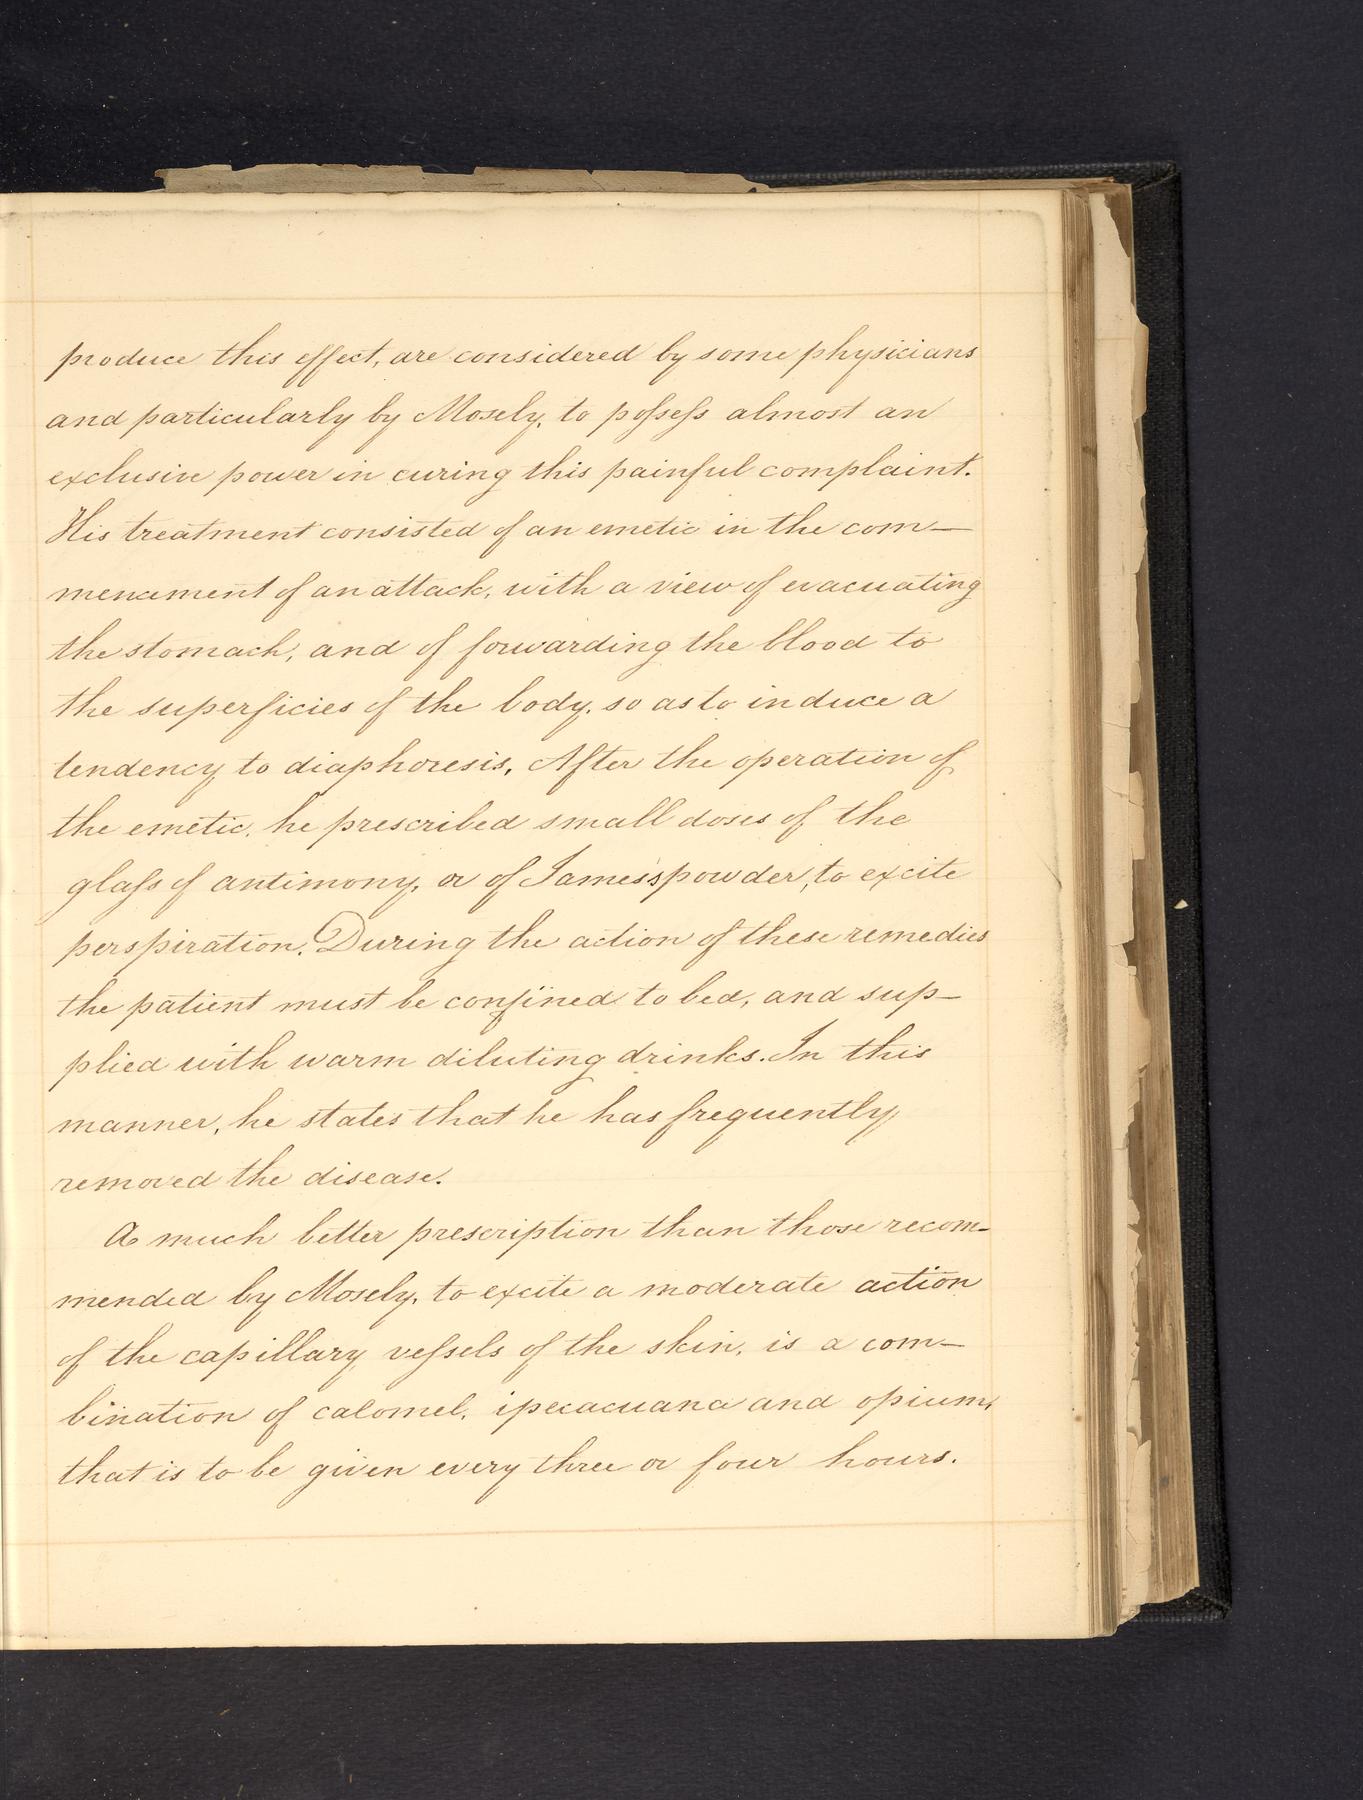 produce this effect, are considered by some physicians
and particularly by Mosely, to possess almost an
exclusive power in curing this painful complaint.
His treatment consisted of an emetic in the com—
mencement of an attack, with a view of evacuating
the stomach, and of forwarding the blood to
the superficies of the body, so as to induce a
tendency to diaphoresis. After the operation of
the emetic, he prescribed small doses of the
glass of antimony, or of James's powder, to excite
perspiration. During the action of these remedies
the patient must be confined to bed, and sup—
plied with warm diluting drinks. In this
manner, he states that he has frequently
removed the disease.
A much better prescription than those recom—
mended by Mosely, to excite a moderate action
of the capillary vessels of the skin, is a com—
bination of calomel, ipecacuana and opium,
that is to be given every three or four hours.